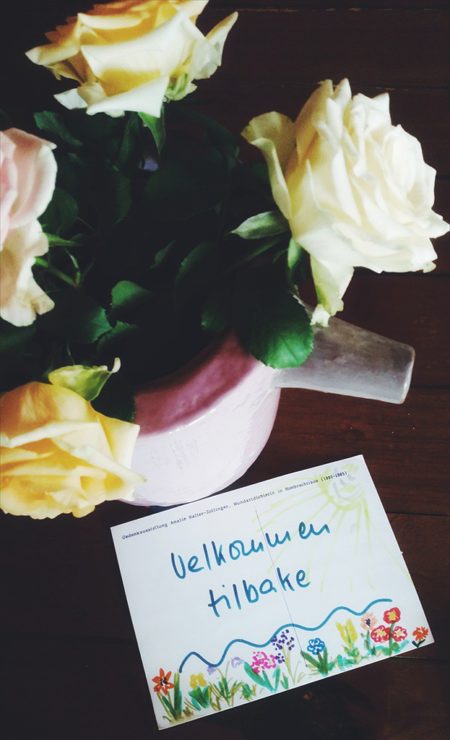 Gedenkausstellung Amalie Halter-Zollinger, Mundartdichterin in Hombrechtikon (1891-1985)
Velkommen
tilbake